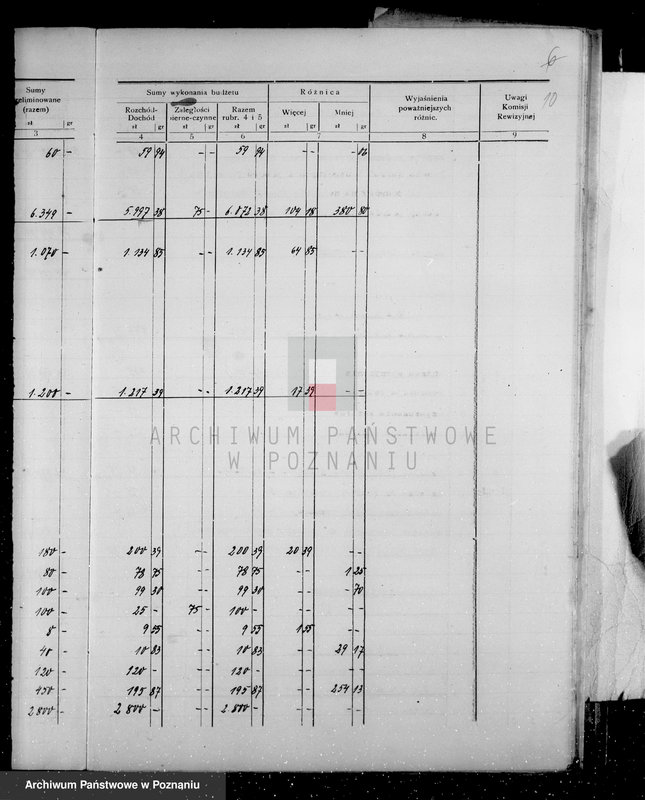 6
10
Sumy
reliminowane
(razem)
zł gr
3
Sumy wykonania budżetu
Rozchód-
Dochód
zł gr
4
Zaległości
bierne-czynne
zł gr
5
Razem
rubr. 4 i 5
zł gr
6
Różnica
Więcej Mniej
zł gr zł gr
7
Wyjaśnienia
poważniejszych
różnic.
8
Uwagi
Komisji
Rewizyjnej
9
60 - 59 94 - - 59 94 - - - 06
6.349 - 5.997 38 75 - 6.072 38 104 18 380 80
1.070 - 1.134 85 - - 1.134 85 64 85 - -
1.200 - 1.217 39 - - 1.217 39 17 39 - -
ARCHIWUM PAŃSTWOWE
W POZNANIU
180 - 200 39 - - 200 39 20 39 - -
80 - 78 75 - - 78 75 1 25
100 - 99 30 - - 99 30 - 70
100 - 25 - 75 - 100 -
8 - 9 55 - - 9 55 1 55
40 - 10 83 - - 10 83 29 17
120 - 120 - - - 120 -
450 - 195 87 - - 195 87 254 13
2800 - 2800 - - - 2800 -
Archiwum Państwowe w Poznaniu